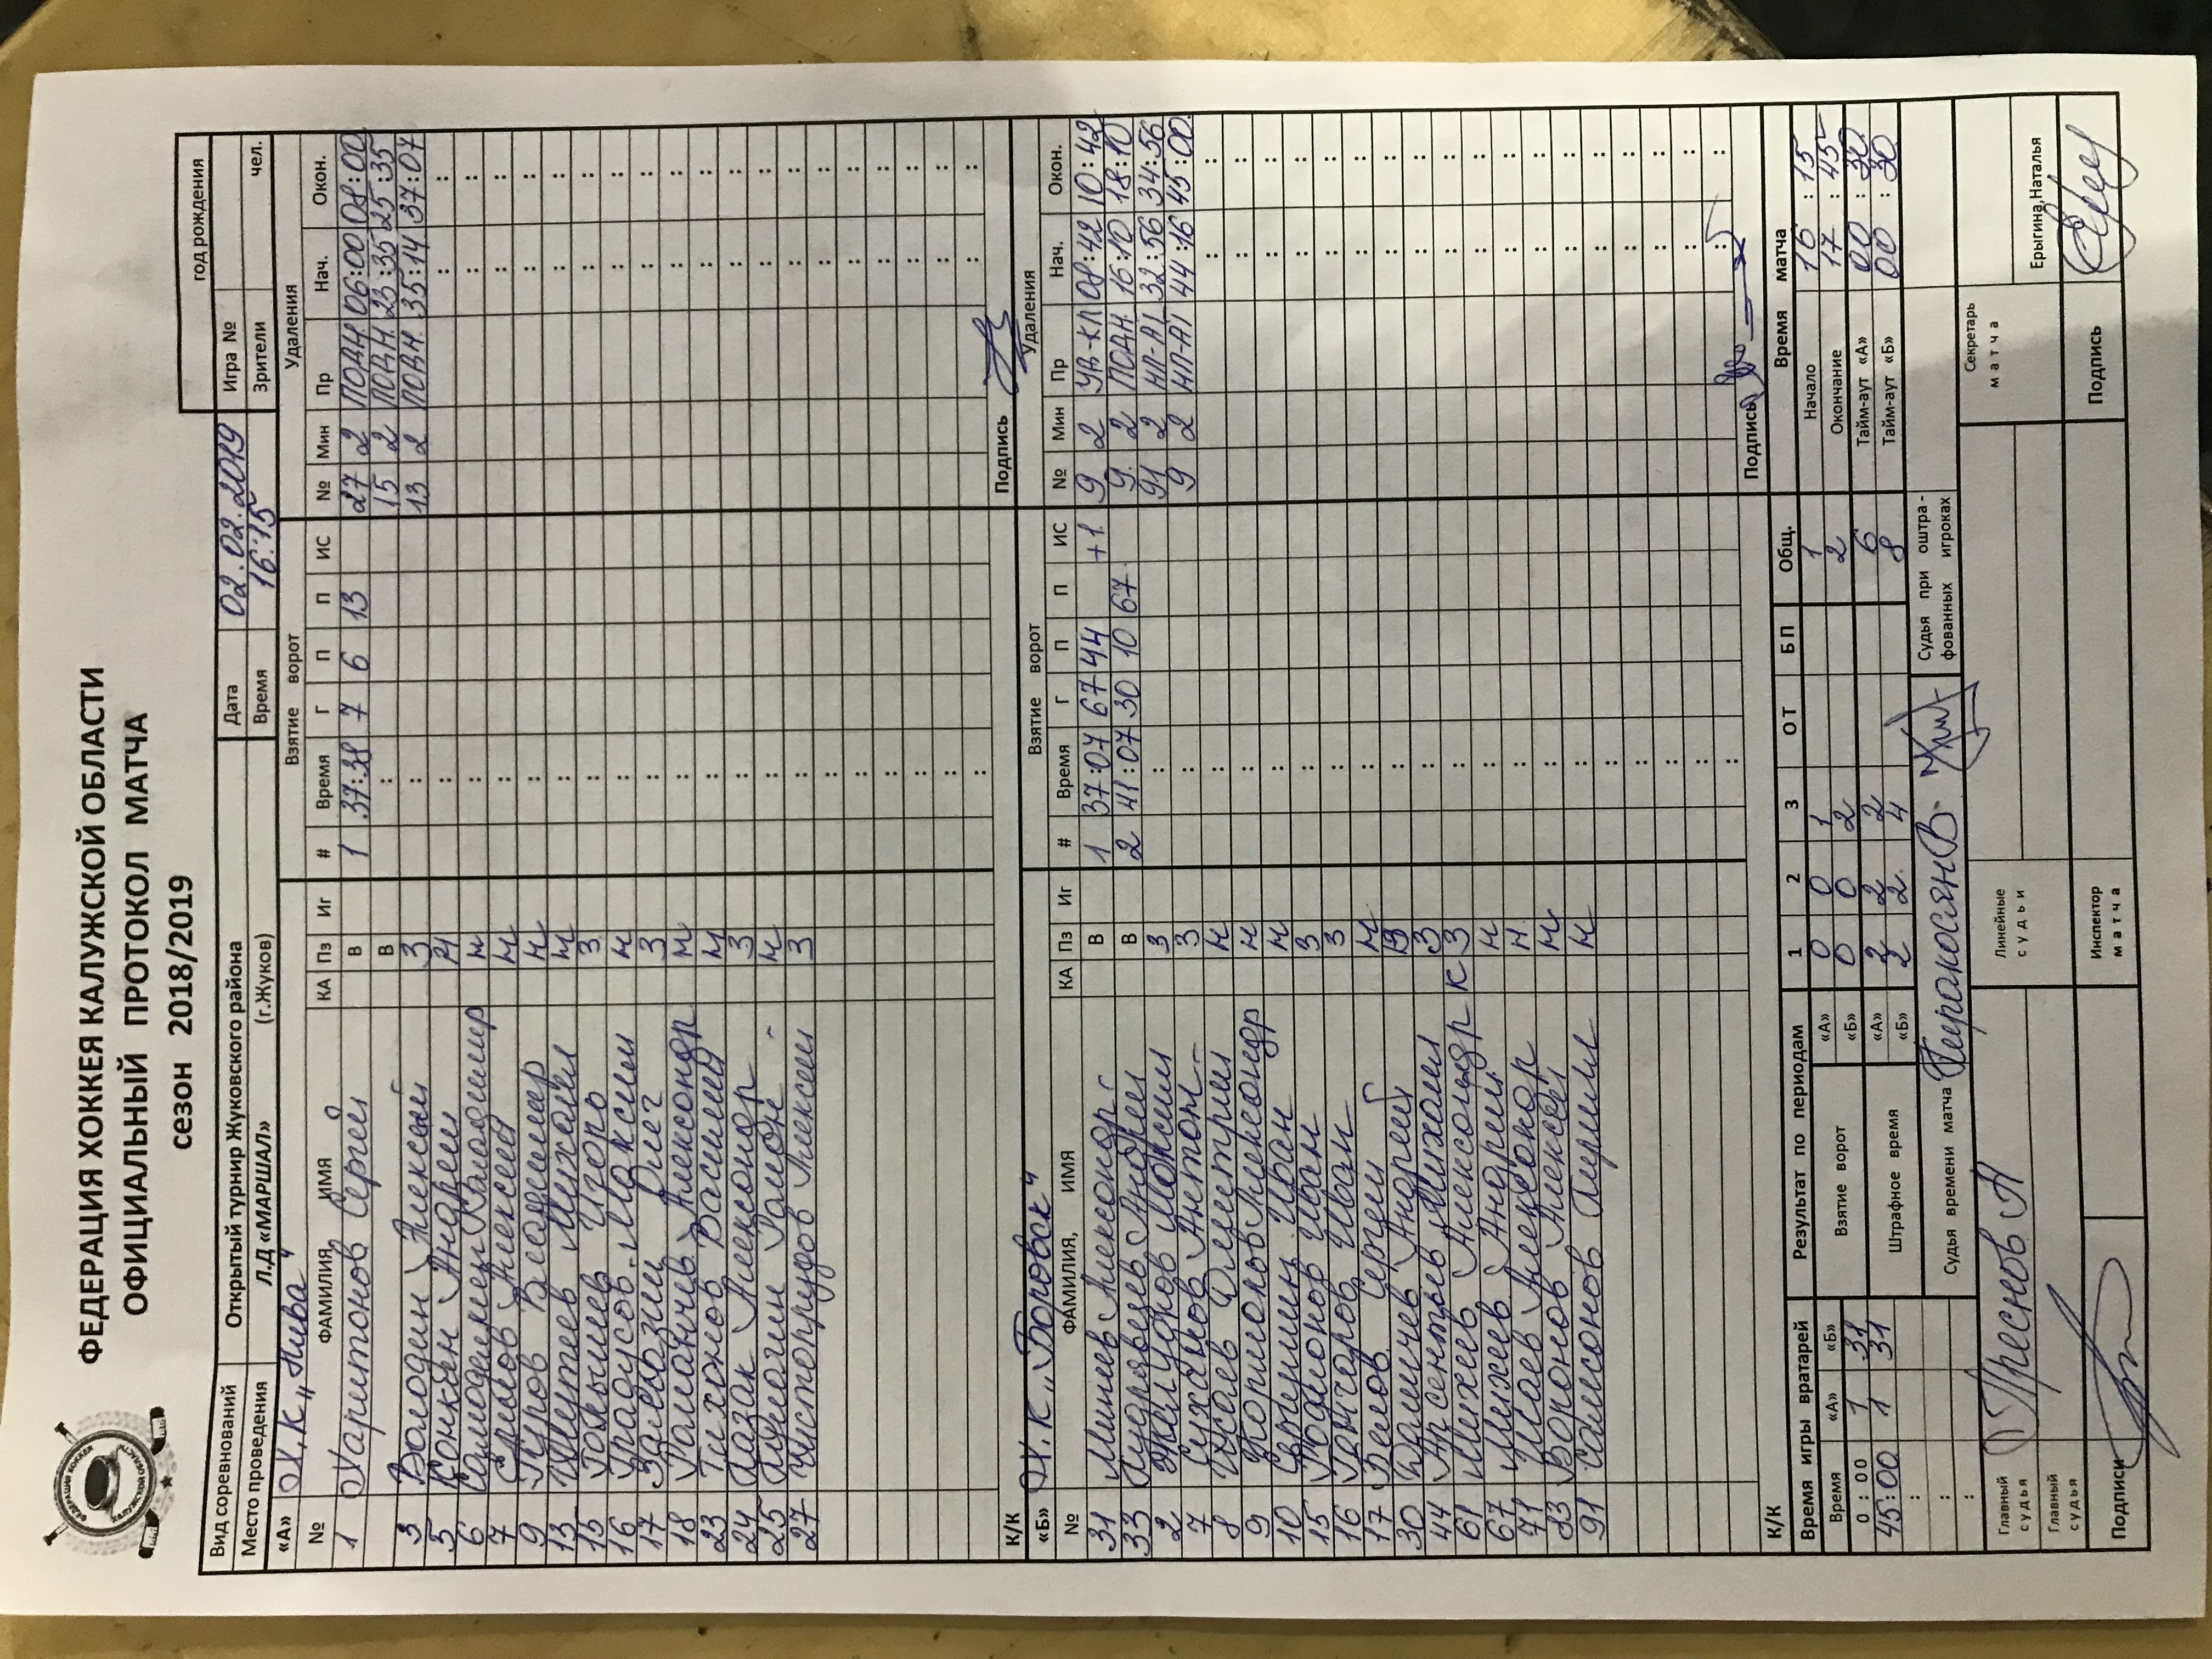 ФЕДЕРАЦИЯ ХОККЕЯ КАЛУЖСКОЙ ОБЛАСТИ
ОФИЦИАЛЬНЫЙ ПРОТОКОЛ МАТЧА
сезон 2018/2019
год рождения
Вид соревнований Открытый турнир Жуковского района Дата 02.02.2019 Игра №
Место проведения Л.Д «МАРШАЛ» (г.Жуков) Время 16:15 Зрители чел.
«А» Х.К „Нива" Взятие ворот Удаления
№ ФАМИЛИЯ, ИМЯ КА Пз Иг # Время Г П П ИС № Мин Пр Нач. Окон.
1 Харитонов Сергей В 1 37:38 7 6 13 27 2 ПОДН 06:00 08:00
В 15 2 ПОДН. 23:35 25:35
3 Володин Алексей З 13 2 ПОДН. 35:14 37:07
5 Конкин Андрей Н
6 Владимир Н
7 Ермаков Алексей Н
9 Гуров Владимир Н
13 Шутеев Михаил Н
15 Голышев Игорь З
16 Брадусов Максим Н
17 Олег З
18 Романчев Александр Н
23 Тихонов Василий Н
24 Казак Александр З
25 Кулагин Роман Н
27 Чистопрудов Алексей З
К/К Подпись
«Б» Х.К „Боровск" Взятие ворот Удаления
№ ФАМИЛИЯ, ИМЯ КА Пз Иг # Время Г П П ИС № Мин Пр Нач. Окон.
31 Минеев Александр В 1 37:07 67 44 +1 9 2 УД-КЛ 08:42 10:42
33 Кудрявцев Андрей В 2 41:07 30 10 67 91 2 ПОДН. 16:10 18:10
2 Максим З 91 2 НП-АТ 32:56 34:56
7 Суханов Антон З 9 2 НП-АТ 44:16 45:00
8 Исаев Дмитрий Н
9 Александр Н
10 Иван Н
15 Родионов Иван З
16 Гончаров Иван З
17 Белов Сергей Н
30 Даничев Андрей
44 Арсентьев Михаил З
61 Михеев Александр К З
67 Михеев Андрей Н
71 Исаев Александр Н
83 Воронов Алексей Н
91 Самсонов Кирилл Н
К/К Подпись
Время игры вратарей Результат по периодам 1 2 3 ОТ БП Общ. Время матча
Время «А» «Б» Взятие ворот «А» 0 0 1 1 Начало 16:15
0:00 1 31 «Б» 0 0 2 2 Окончание 17:45
45:00 1 31 Штрафное время «А» 2 2 2 6 Тайм-аут «А» 00:30
«Б» 2 2 4 8 Тайм-аут «Б» 00:30
Судья времени матча Киракосян В Судья при оштрафованных игроках
Главный судья Преснов А Линейные судьи Секретарь матча Ерыгина Наталья
Главный судья
Подписи Инспектор матча Подпись